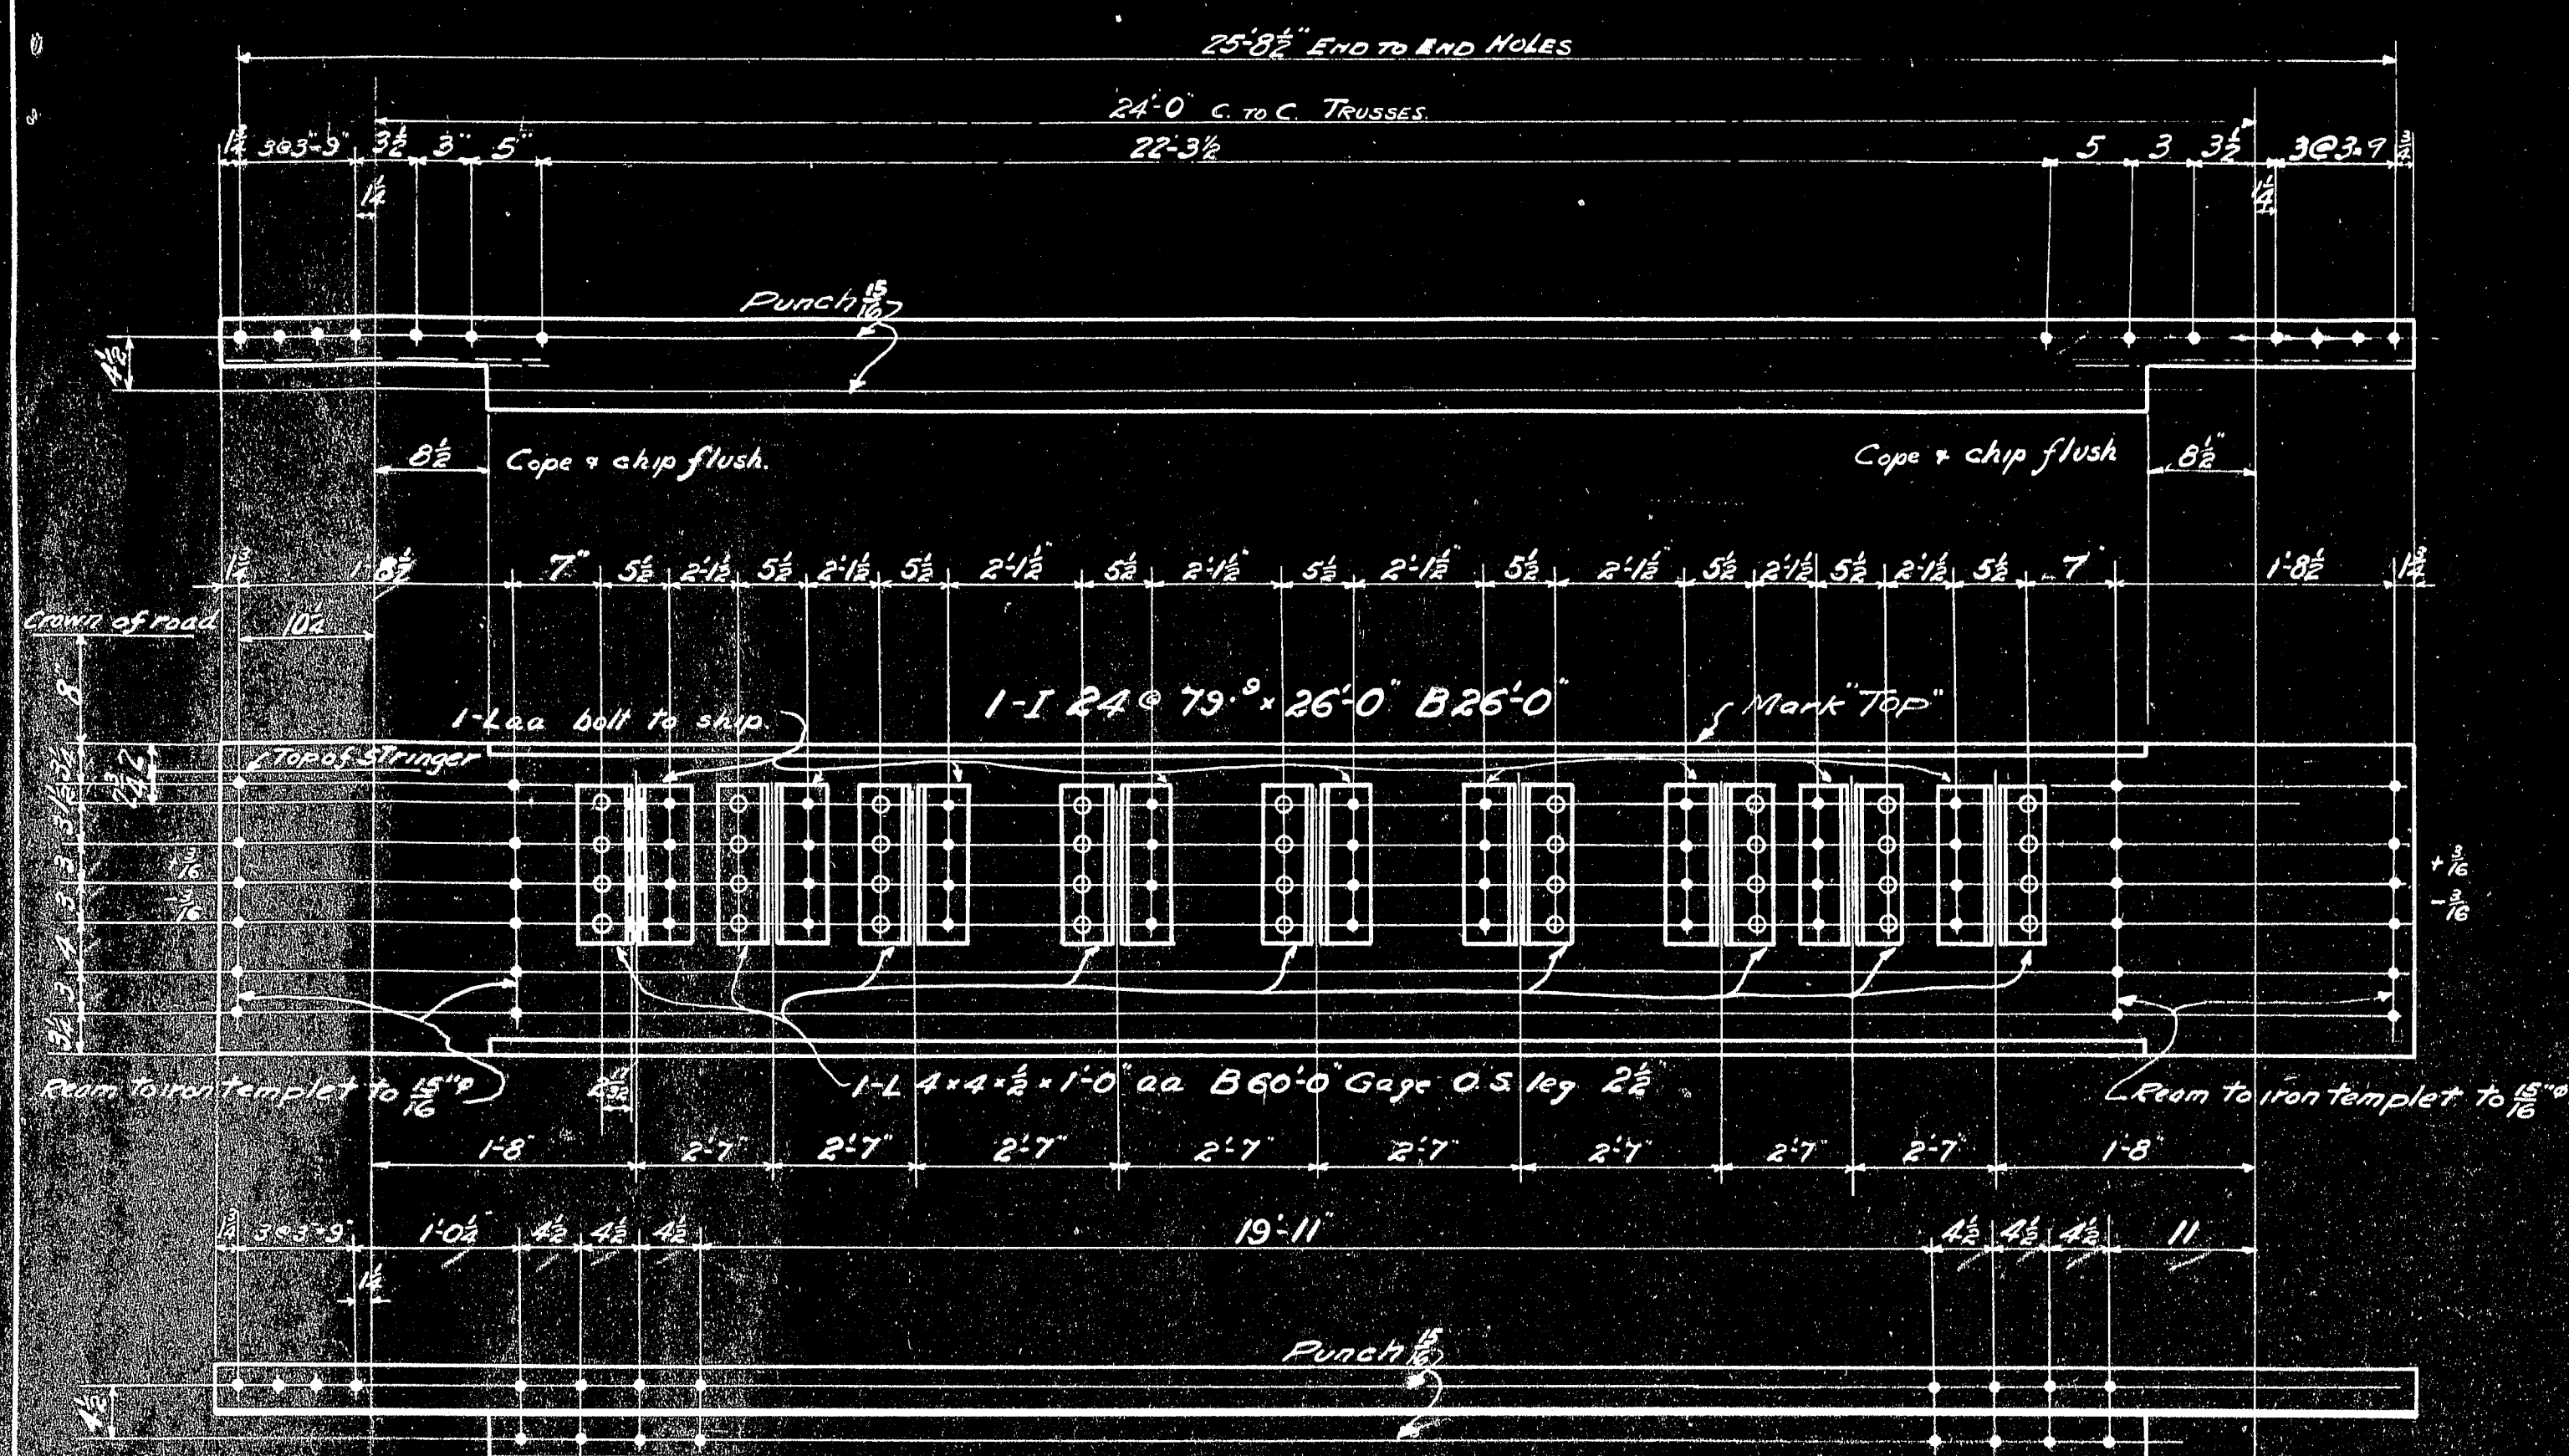 25'-8½" END TO END HOLES
24'-0" C. TO C. TRUSSES.
1¾ 3@3"-9" 3½ 3" 5" 22'-3½ 5 3 3½" 3@3=9 1¾
1¼ 1¼
Punch 15/16
4½
8½ Cope & chip flush. Cope & chip flush 8½"
1¾ 1'-8½ 7" 5½ 2'-1½ 5½ 2'-1½ 5½ 2'-1½" 5½ 2'-1½" 5½ 2'-1½" 5½ 2'-1½" 5½ 2'-1½ 5½ 2'-1½ 5½ 7" 1'-8½ 1¾
Crown of road 10½
8"
1-I 24 @ 79.9 x 26'-0" B26'-0"
1-Laa bolt to ship. Mark "Top"
Top of Stringer
3¼ 1½ 3 3 3 4 3 3¼
2¾ 2
+3/16 +3/16
-3/16 -3/16
Ream to iron templet to 15/16"φ 1-L 4x4x½x1'-0" aa B60'-0" Gage O.S. leg 2½" Ream to iron templet to 15/16"φ
1'-8" 2'-7" 2'-7" 2'-7" 2'-7" 2'-7" 2'-7" 2'-7" 2'-7" 1'-8"
1¾ 3@3=9" 1'-0¼" 4½ 4½ 4½ 19'-11" 4½ 4½ 4½ 11
1¼
Punch 15/16
4½